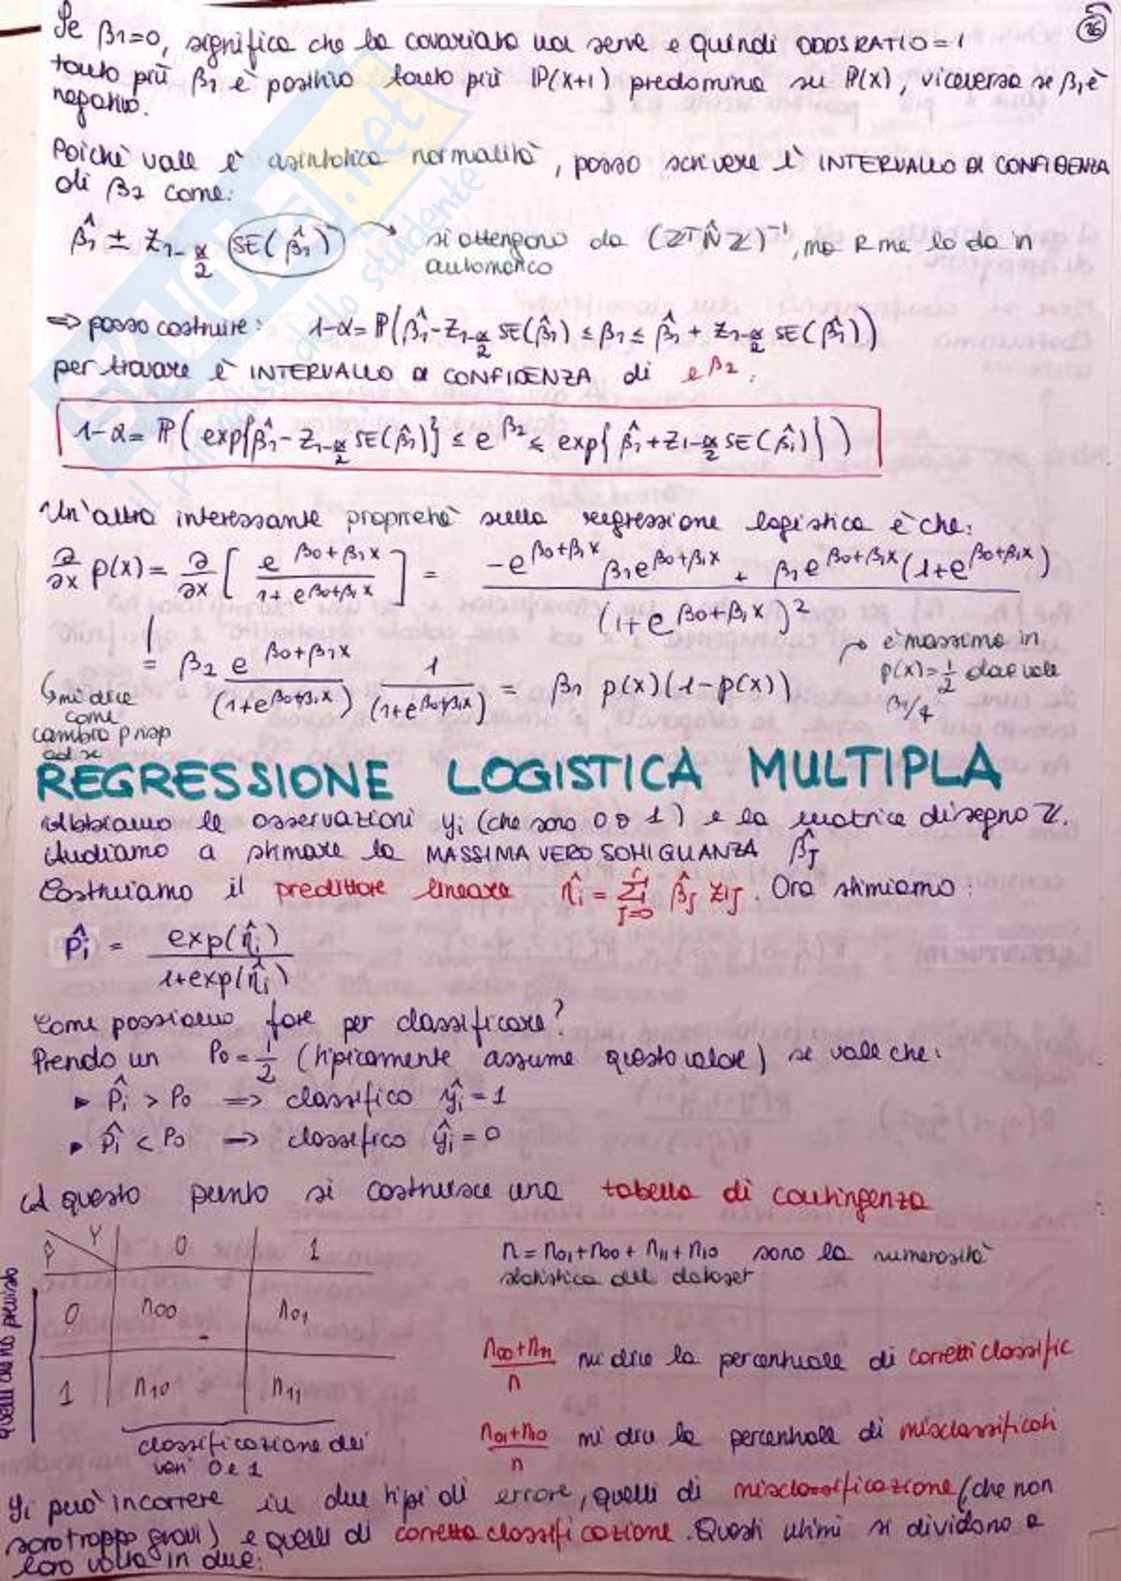 26
Se β1=0, significa che la covariata non serve e quindi ODDS RATIO = 1
tanto più β1 è positivo tanto più P(x+1) predomina su P(x), viceversa se β1 è
negativo.
Poichè vale l'asintotica normalità, posso scrivere l'INTERVALLO DI CONFIDENZA
di β1 come:
β̂1 ± Z1-α/2 SE(β̂1) → si ottengono da (ZTŴZ)⁻¹, ma R me lo da in
automatico
⇒ posso costruire: 1-α = P(β̂1 - Z1-α/2 SE(β̂1) ≤ β1 ≤ β̂1 + Z1-α/2 SE(β̂1))
per trovare l'INTERVALLO DI CONFIDENZA di e^β1:
1-α = P( exp{β̂1 - Z1-α/2 SE(β̂1)} ≤ e^β1 ≤ exp{β̂1 + Z1-α/2 SE(β̂1)} )
Un'altra interessante proprietà sulla regressione logistica è che:
∂/∂x p(x) = ∂/∂x [ e^(β0+β1x) / (1+e^(β0+β1x)) ] = (-e^(β0+β1x) β1e^(β0+β1x) + β1e^(β0+β1x)(1+e^(β0+β1x))) / (1+e^(β0+β1x))²
= β1 e^(β0+β1x) / (1+e^(β0+β1x)) · 1 / (1+e^(β0+β1x)) = β1 p(x)(1-p(x))
→ è massimo in
p(x)=1/2 dove vale
β1/4
↳ mi dice
come
cambia p risp
ad x
REGRESSIONE LOGISTICA MULTIPLA
Abbiamo le osservazioni yi (che sono 0 o 1) e la matrice disegno Z.
Andiamo a stimare la MASSIMA VEROSOMIGLIANZA β̂J
Costruiamo il predittore lineare η̂i = Σ J=0 r β̂J ziJ. Ora stimiamo:
P̂i = exp(η̂i) / 1+exp(η̂i)
Come possiamo fare per classificare?
Prendo un P0 = 1/2 (tipicamente assume questo valore) se vale che:
▸ P̂i > P0 ⇒ classifico ŷi = 1
▸ P̂i < P0 ⇒ classifico ŷi = 0
A questo punto si costruisce una tabella di contingenza
Ŷ Y 0 1
0 n00 n01
1 n10 n11
quelli che ho previsto
classificazione dei
veri 0 e 1
n = n01+n00+n11+n10 sono la numerosità
statistica del dataset
n00+n11 / n mi dice la percentuale di corretti classific
n01+n10 / n mi dice la percentuale di misclassificati
Si può incorrere in due tipi di errore, quelli di misclassificazione (che non
sono troppo gravi) e quelli di corretta classificazione. Questi ultimi si dividono a
loro volta in due:
SKUOLA.net
il paradiso dello studente